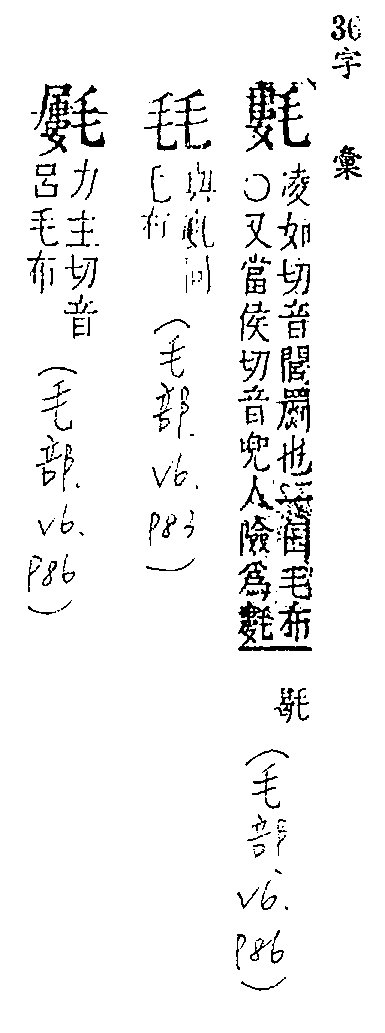 36字 彙
氀
凌如切音閭罽也一曰毛布
○又當侯切音兜人險為氀
(毛部 v6. p86)
與氀同
毛布
(毛部. v6. p83)
力主切音
呂毛布
(毛部. v6. p86)